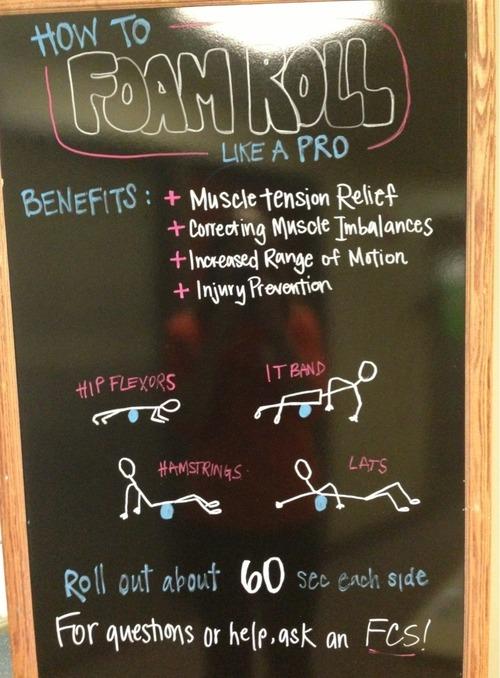 HOW TO
FOAM ROLL
LIKE A PRO
BENEFITS: + Muscle tension Relief
+ Correcting Muscle Imbalances
+ Increased Range of Motion
+ Injury Prevention
HIP FLEXORS
IT BAND
HAMSTRINGS
LATS
Roll out about 60 sec each side
For questions or help, ask an FCS!